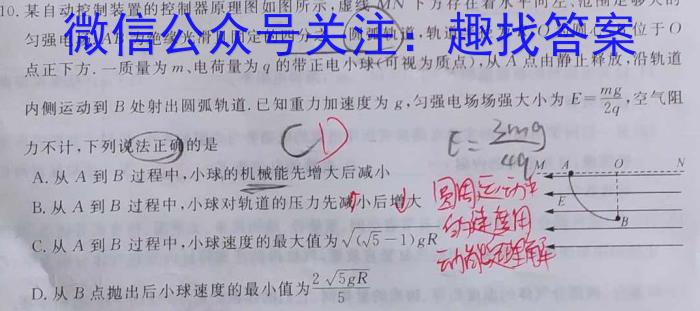 10.某自动控制装置的控制器原理图如图所示,虚线 MN 下方存在着水平向左、范围足够大的
微信公众号关注：趣找答案
匀强电
位于 O
点正下方.一质量为 m、电荷量为 q 的带正电小球(可视为质点),从 A 点由静止释放,沿轨道
内侧运动到 B 处射出圆弧轨道.已知重力加速度为 g,匀强电场场强大小为 E=mg/2q,空气阻
力不计,下列说法正确的是
C D
E=3mg/4q
A.从 A 到 B 过程中,小球的机械能先增大后减小
B.从 A 到 B 过程中,小球对轨道的压力先减小后增大
C.从 A 到 B 过程中,小球速度的最大值为 √((√5-1)gR)
D.从 B 点抛出后小球速度的最小值为 2√5gR/5
M A O N
E
B
圆周运动中
速度用
动能定理解